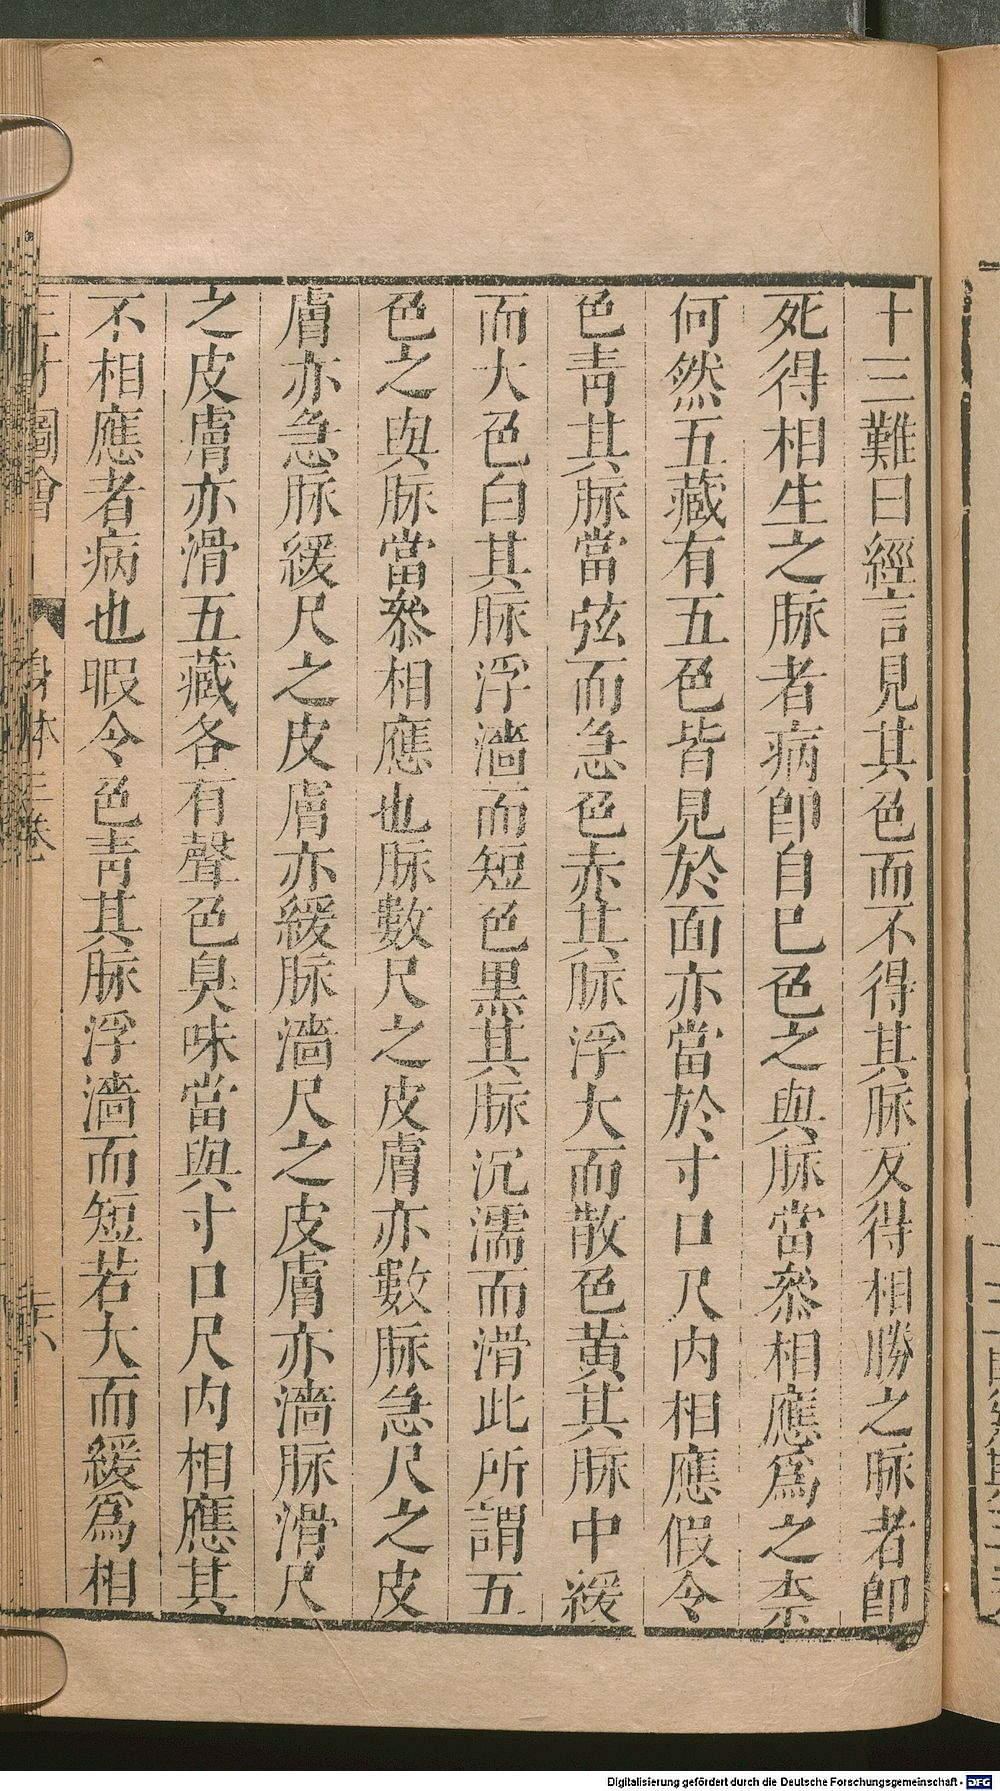 十三難曰經言見其色而不得其脉反得相勝之脉者卽
死得相生之脉者病卽自已色之與脉當叅相應爲之柰
何然五藏有五色皆見於面亦當於寸口尺內相應假令
色靑其脉當弦而急色赤其脉浮大而散色黃其脉中緩
而大色白其脉浮濇而短色黑其脉沉濡而滑此所謂五
色之與脉當叅相應也脉數尺之皮膚亦數脉急尺之皮
膚亦急脉緩尺之皮膚亦緩脉濇尺之皮膚亦濇脉滑尺
之皮膚亦滑五藏各有聲色臭味當與寸口尺內相應其
不相應者病也暇令色靑其脉浮濇而短若大而緩爲相
三才圖會 身体三卷
Digitalisierung gefördert durch die Deutsche Forschungsgemeinschaft - DFG